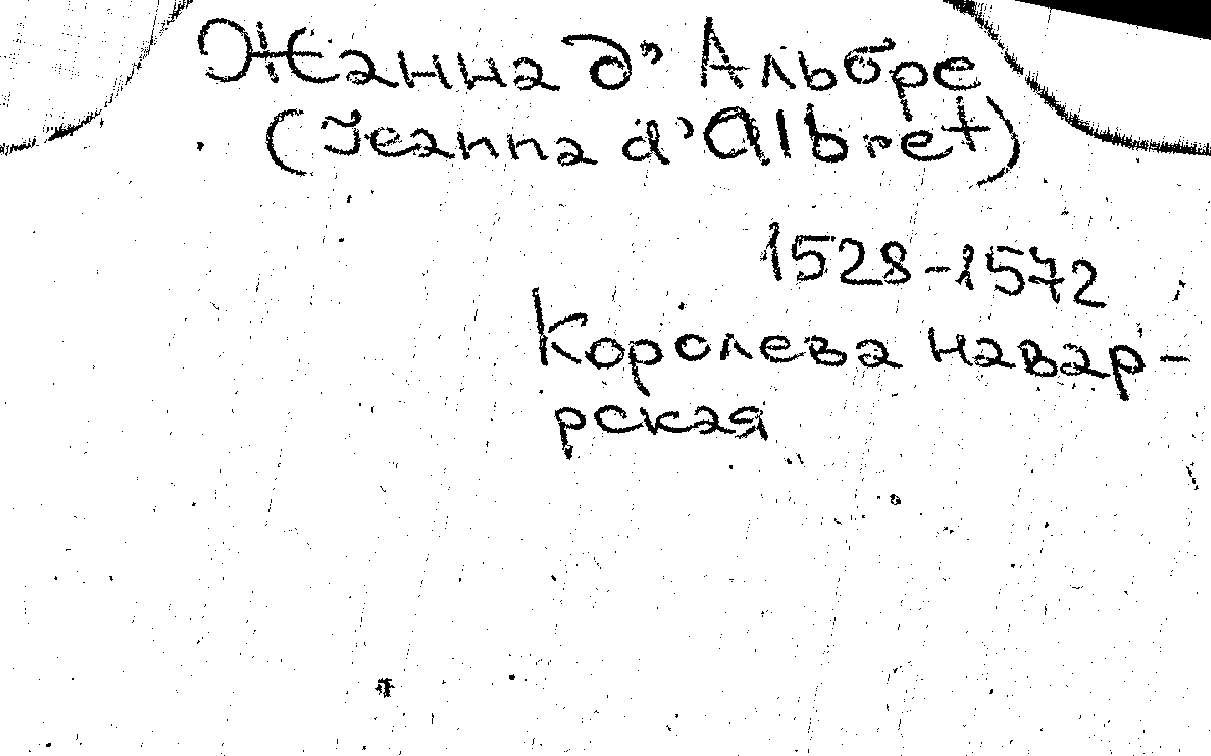 Жанна д' Альбре
(Jeanna d'Albret)
1528-1572
Королева навар-
рская